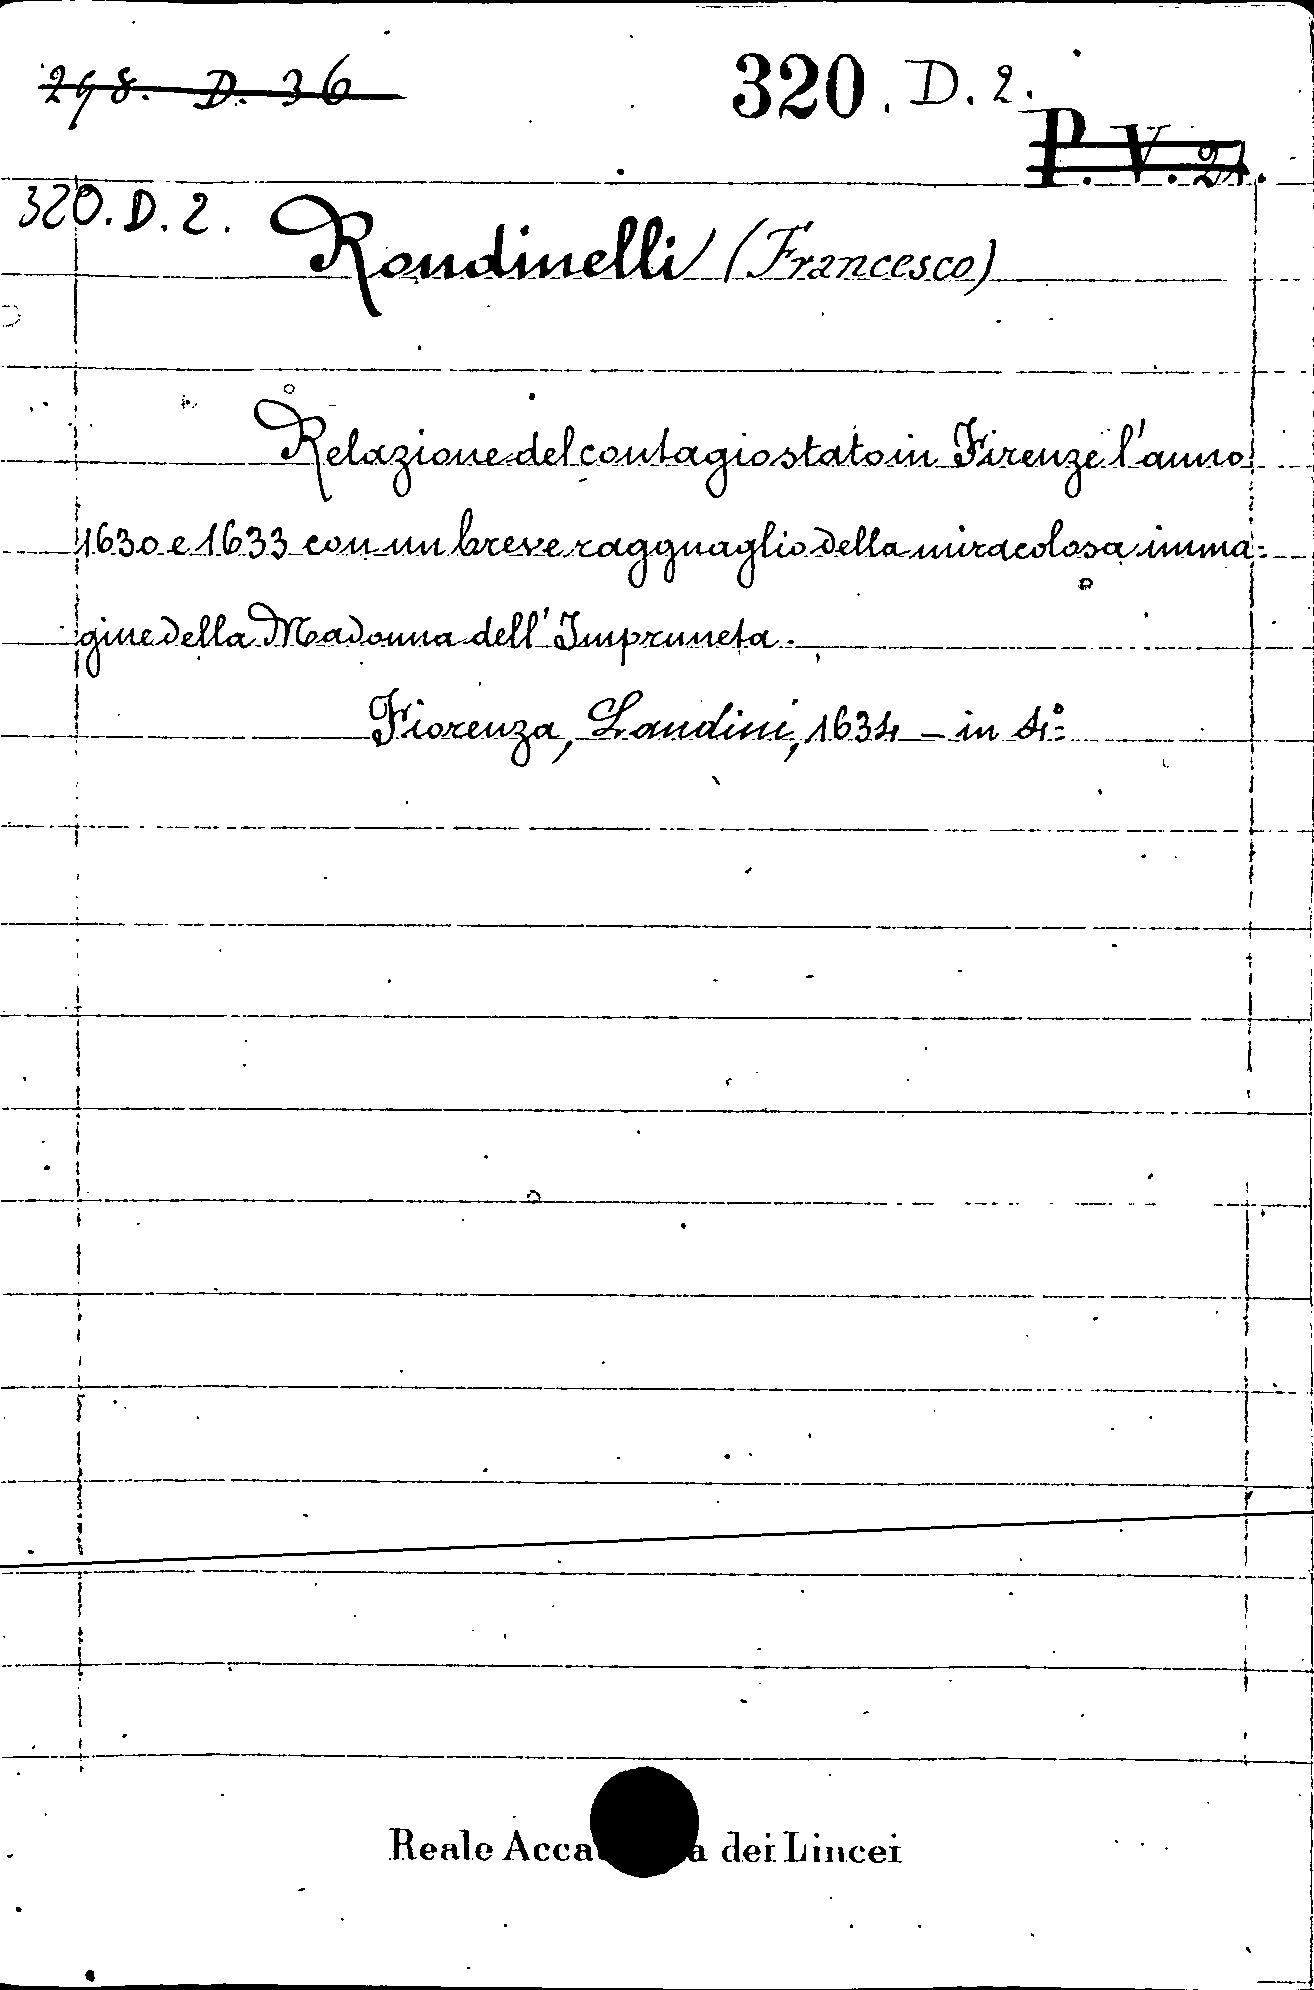 298. D. 36
320. D. 2.
P. V. 21.
320. D. 2.
Rondinelli (Francesco)
Relazione del contagio stato in Firenze l'anno
1630 e 1633 con un breve ragguaglio della miracolosa imma=
gine della Madonna dell' Impruneta.
Fiorenza, Landini, 1634 - in 4°
Reale dei Lincei